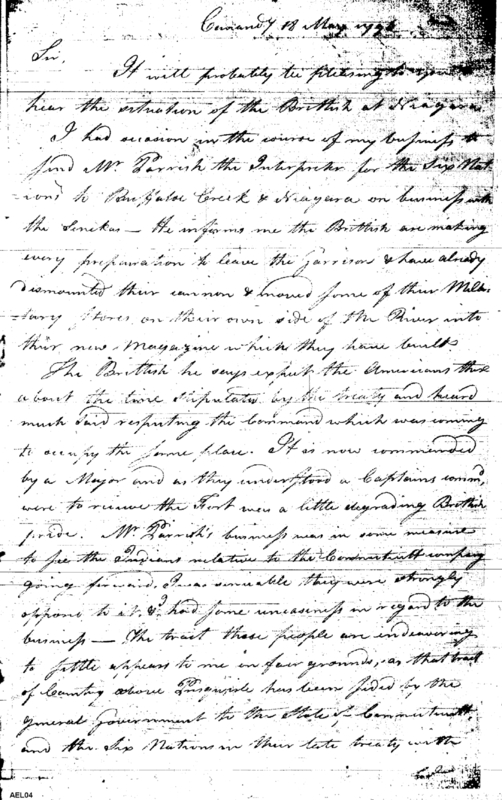 Canandy 18 May 1796
Sir,
It will probably be pleasing to you to
hear the situation of the Brittish at Niagara
I had occasion in the course of my business to
send Mr. Parrish the Interpreter for the Six Nat
ions to Buffaloe Creek & Niagara on business with
the Senekas — He informs me the Brittish are making
every preparation to leave the Garrison & have already
dismounted their cannon & moved some of their Mili-
tary Stores on their own side of the River into
their new Magazine which they have built
The Brittish he says expect the Americans there
about the time stipulated by the treaty and heard
much said respecting the Command which was coming
to occupy the same place. It is now commanded
by a Major and as they understood a Captains comm.d
were to receive the Fort was a little degrading Brittish
pride. Mr. Parrish's business was in some measure
to see the Indians relative to the Connecticutt company
going forward, I was sensible they were strongly
opposed to it, & had some uneasiness in regard to the
business — The tract those people are endeavoring
to settle appears to me on fair grounds, as that tract
of Country above Presquisle has been ceded by the
general Government to the State of Connecticutt,
and the Six Nations in their late treaty with
AEL04